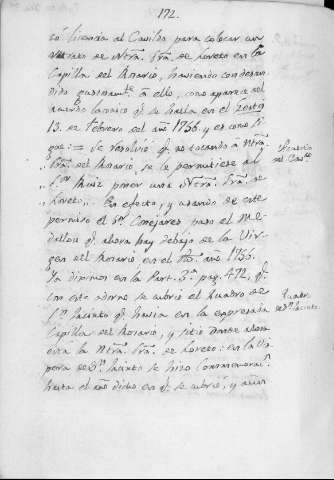 172.
tó licencia al Cavildo para colocar un
retrato de Ntrã. Srã. de Loreto en la
Capilla del Rosario, haviendo condesen
dido gustosamte. à ello, como aparece del
acuerdo laconico qe. se halla en el
13. de Febrero del año 1756. y es como si
gue: = Se resolvió qe. no tocando à Ntrã.
Srã. del Rosario, se le permitiese al
Sor. Ruiz poner una Ntrã. Srã. de
Loreto. En efecto, y usando de este
permiso el Sr. Conejares puso el Me-
dallon qe. ahora hay debajo de la Vir-
gen del Rosario en el año 1756.
Ya diximos en la Part. 3ª. pag. 472, qe.
con este adorno se cubrió el Quadro de
Sn. Jacinto qe. havia en la expresada
Capilla del Rosario, y sitio donde ahora
está la Ntrã. Srã. de Loreto: en la Vis
pera de Sn. Jacinto se hizo Conmemoracn.
hasta el año dicho en qe. se cubrió, y aun
del Cavdo.
Quadro
de Sn. Jacinto